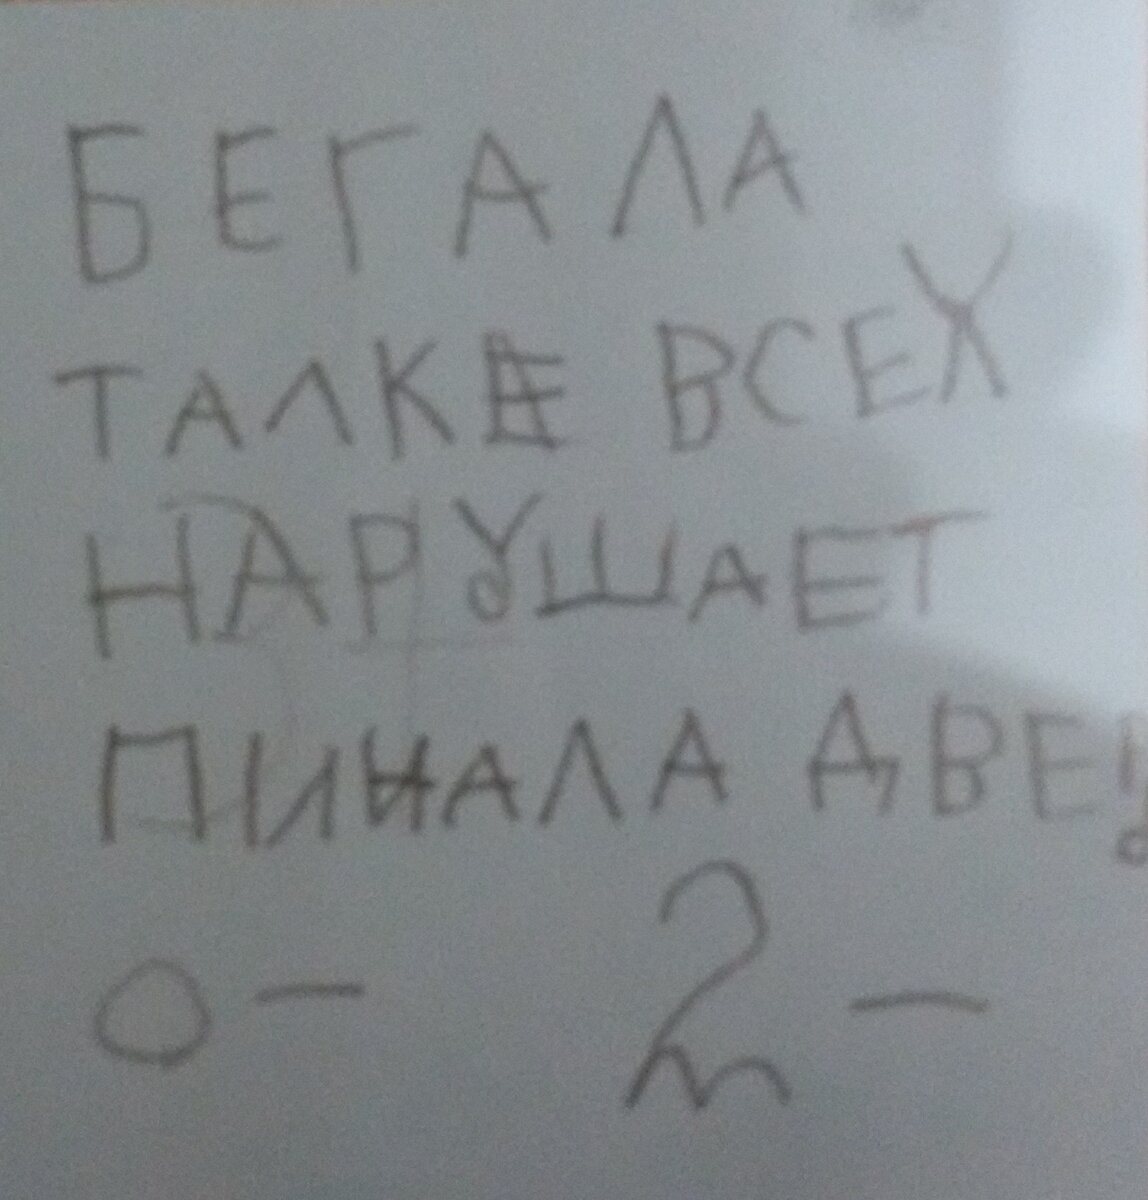 БЕГАЛА
ТАЛКЕ ВСЕХ
НАРУШАЕТ
ПИНАЛА ДВЕ!
0 - 2 -